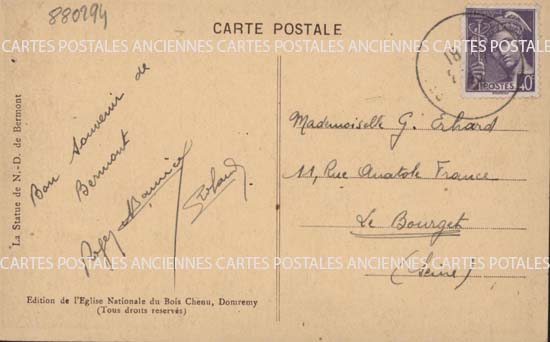 880294
CARTE POSTALE
CARTES POSTALES ANCIENNES CARTES POSTALES ANCIENNES CARTES POSTALES
18
POSTES 40c
La Statue de N.-D. de Bermont
Bon Souvenir de
Bermont
Roger Maurice
Roland
Mademoiselle G. Erhard
11, Rue Anatole France
Le Bourget
(Seine)
CARTES POSTALES ANCIENNES CARTES POSTALES ANCIENNES CARTES POSTALES
Edition de l'Eglise Nationale du Bois Chenu, Domremy
(Tous droits reservés)